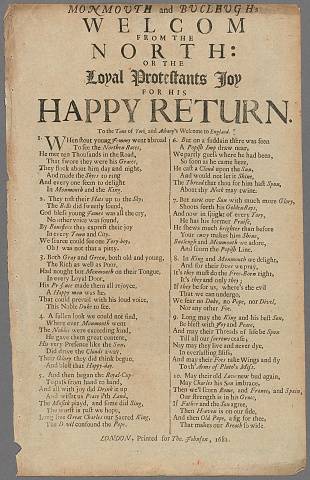 MONMOUTH and BUCLEUGHS
WELCOM
FROM THE
NORTH:
OR THE
Loyal Protestants Joy
FOR HIS
HAPPY RETURN.
To the Tune of York, and Albany's Welcome to England.
1. WHen stout young Jemmy went abroad
To see the Northern Races,
He met ten Thousands in the Road,
That swore they were his Graces,
They flock about him day and night,
And made the Skys to ring
And every one seem to delight
In Monmouth and the King.
2. They tost their Hats up to the Sky;
The Bells did sweetly sound,
God bless young James was all the cry,
No other voice was found,
By Bonefires they exprest their joy
In every Town and City.
We scarce could see one Tory-boy;
Oh! was not that a pitty.
3. Both Gray and Green, both old and young,
The Rich as well as Poor,
Had nought but Monmouth on their Tongue,
In every Loyal Door,
His Presence made them all rejoyce,
A Happy man was he,
That could prevail with his loud voice,
This Noble Duke to see.
4. A sullen look we could not find,
Where ever Monmouth went;
The Nobles were exceeding kind,
He gave them great content,
His very Presence like the Sun,
Did drive the Clouds away,
Their Glory they did think begun,
And blest that Happy-day.
5. And then began the Royal-Cup
To pass from hand to hand,
And all with joy did Drink it up
And wisht us Peace i'th Land,
The Musick played, and some did Sing,
The worst is past we hope,
Long live Great Charles our Sacred King,
The D. wil confound the Pope.
6. But on a suddain there was seen
A Popish Imp draw near,
We partly guess where he had been,
So soon as he came here,
He cast a Cloud upon the Sun,
And would not let it Shine,
The Thread that thou for him hast Spun,
About thy Neck may twine.
7. But now our Sun with much more Glory,
Shoots forth his Golden Rays,
And now in spight of every Tory,
He has his former Praise,
He shews much brighter than before
Your envy makes him Shine,
Bucleugh and Monmouth we adore,
And scorn the Popish Line.
8. In King and Monmouth we delight,
And for their lives we pray,
It's they must do the Free-Born right,
It's they and only they;
If they be for us, where's the evil
That we can undergo,
We fear no Duke, no Pope, nor Divel,
Nor any other Foe.
9. Long may the King and his best Son,
Be blest with Joy and Peace,
And may their Threads of life be Spun
Till all our sorrows cease;
Nay may they live and never dye,
In everlasting Bliss,
And may their Foes take Wings and fly
To th' Arms of Pluto's Miss.
10. May their old Laws now bud again,
May Charles his Son imbrace,
Then we'l scorn Rome, and France, and Spain,
Our Strength is in his Grace;
If Father and the Son agree,
Then Heaven is on our side,
And then Old Pope, a fig for thee,
That makes our Breach so wide.
LONDON, Printed for Tho. Johnson, 1682.